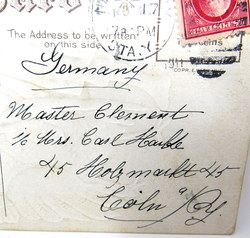 The Address to be written
on this side
17
PM
STA.
1911
cents
Germany
Master Clement
℅ Mrs. Carl Hauble
45 Holzmarkt 45
Cöln a/ Ry.